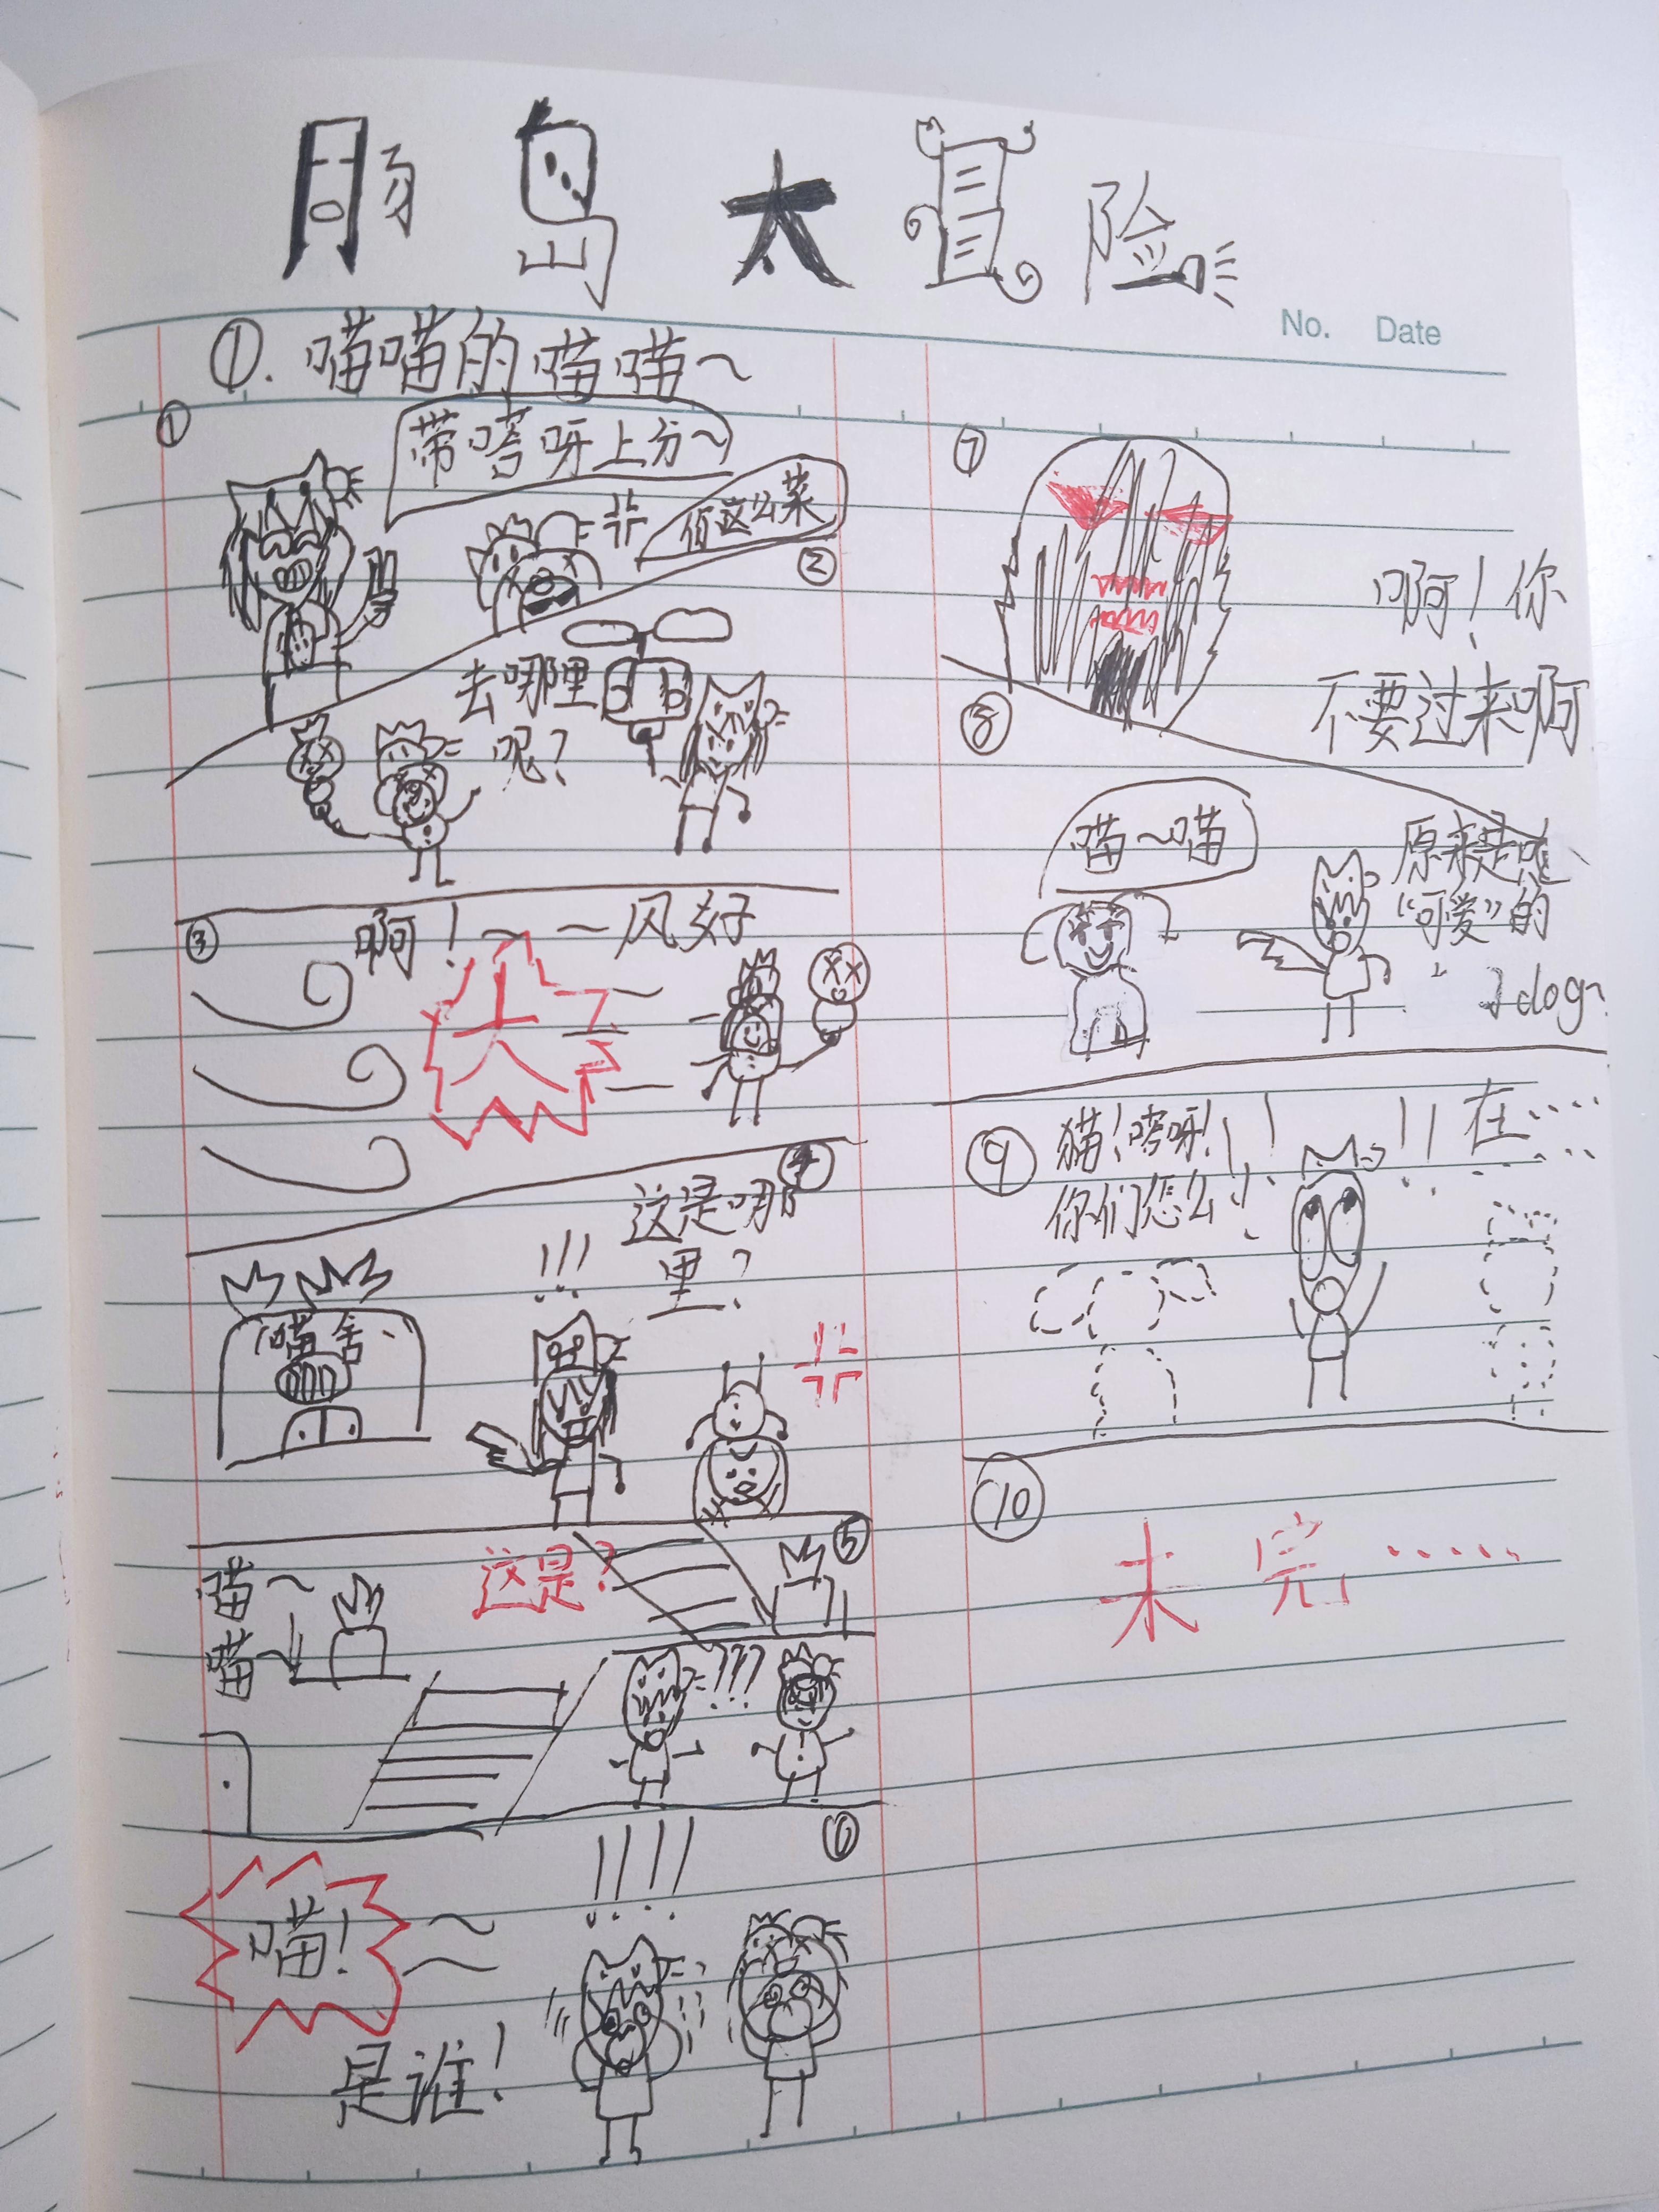 豚鸟大冒险
No. Date
①. 喵喵的喵喵~
①
带嗒呀上分~
你这么菜
②
去哪里
呢?
③
啊!~~风好
大了
④
这是哪
里?
!!!
喵舍
⑤
喵~
喵~
这是?
???
⑥
!!!!
喵!
是谁!
⑦
啊!你
不要过来啊
⑧
喵~喵
原来是
"可爱"的
dog~
⑨
猫!嗒呀!!!
你们怎么!
!!在……
⑩
未完……